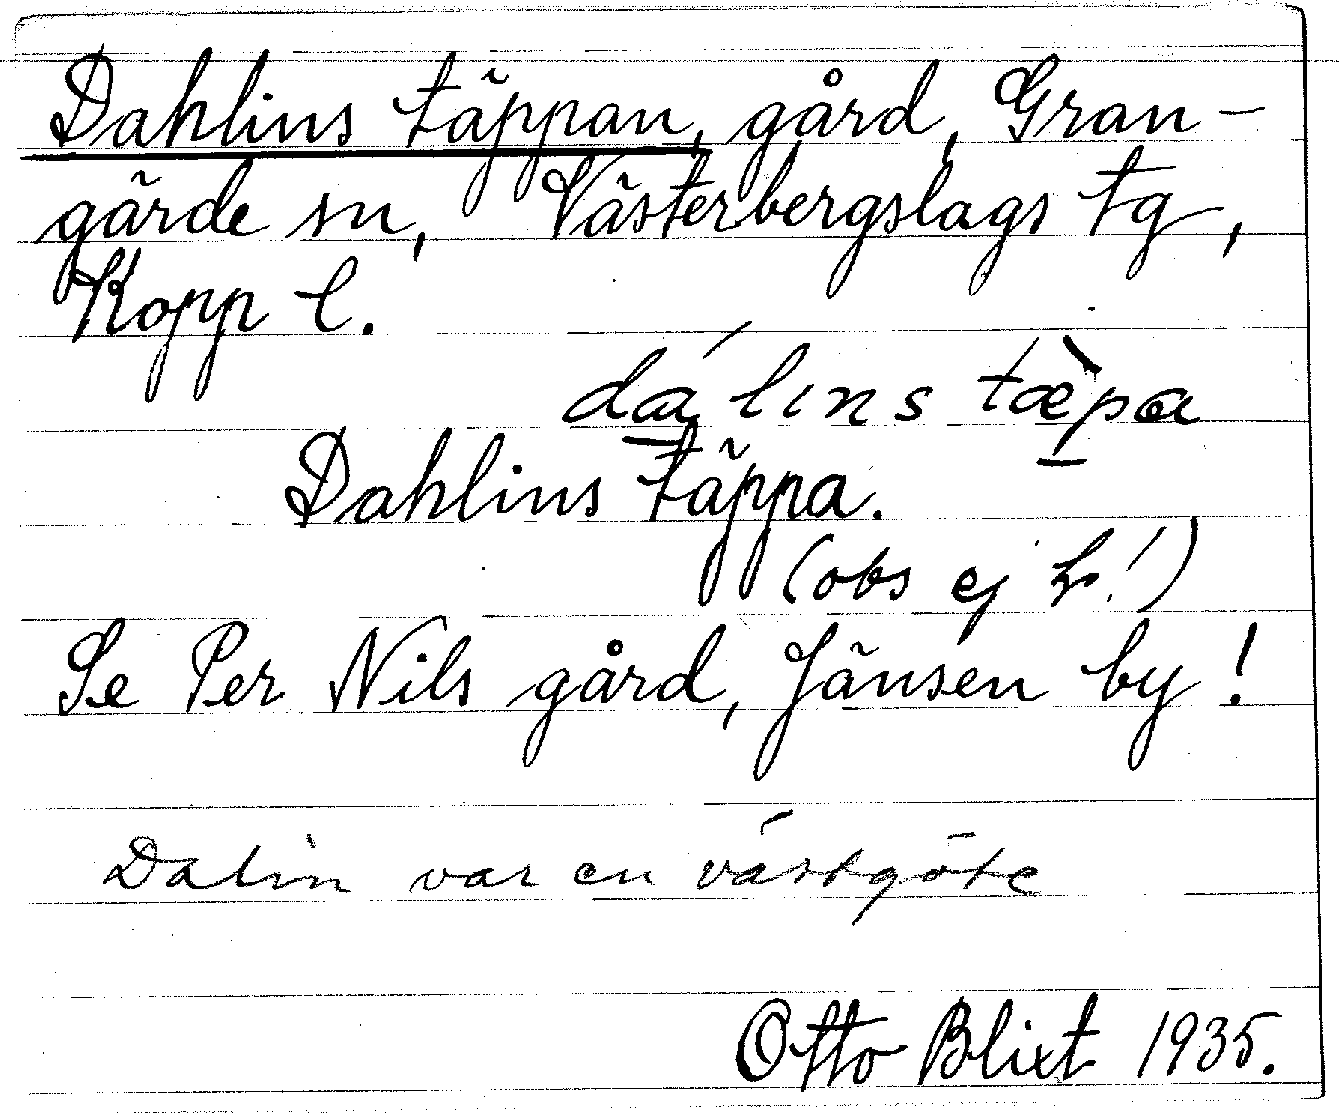 Dahlins täppan, gård, Gran-
gärde sn, Västerbergslags tg,
Kopp l.
dá lıns tæ̀pa
Dahlins täppa.
(obs ej !)
Se Per Nils gård, Jänsen by!
Dalin var en västgöte
Otto Blixt 1935.